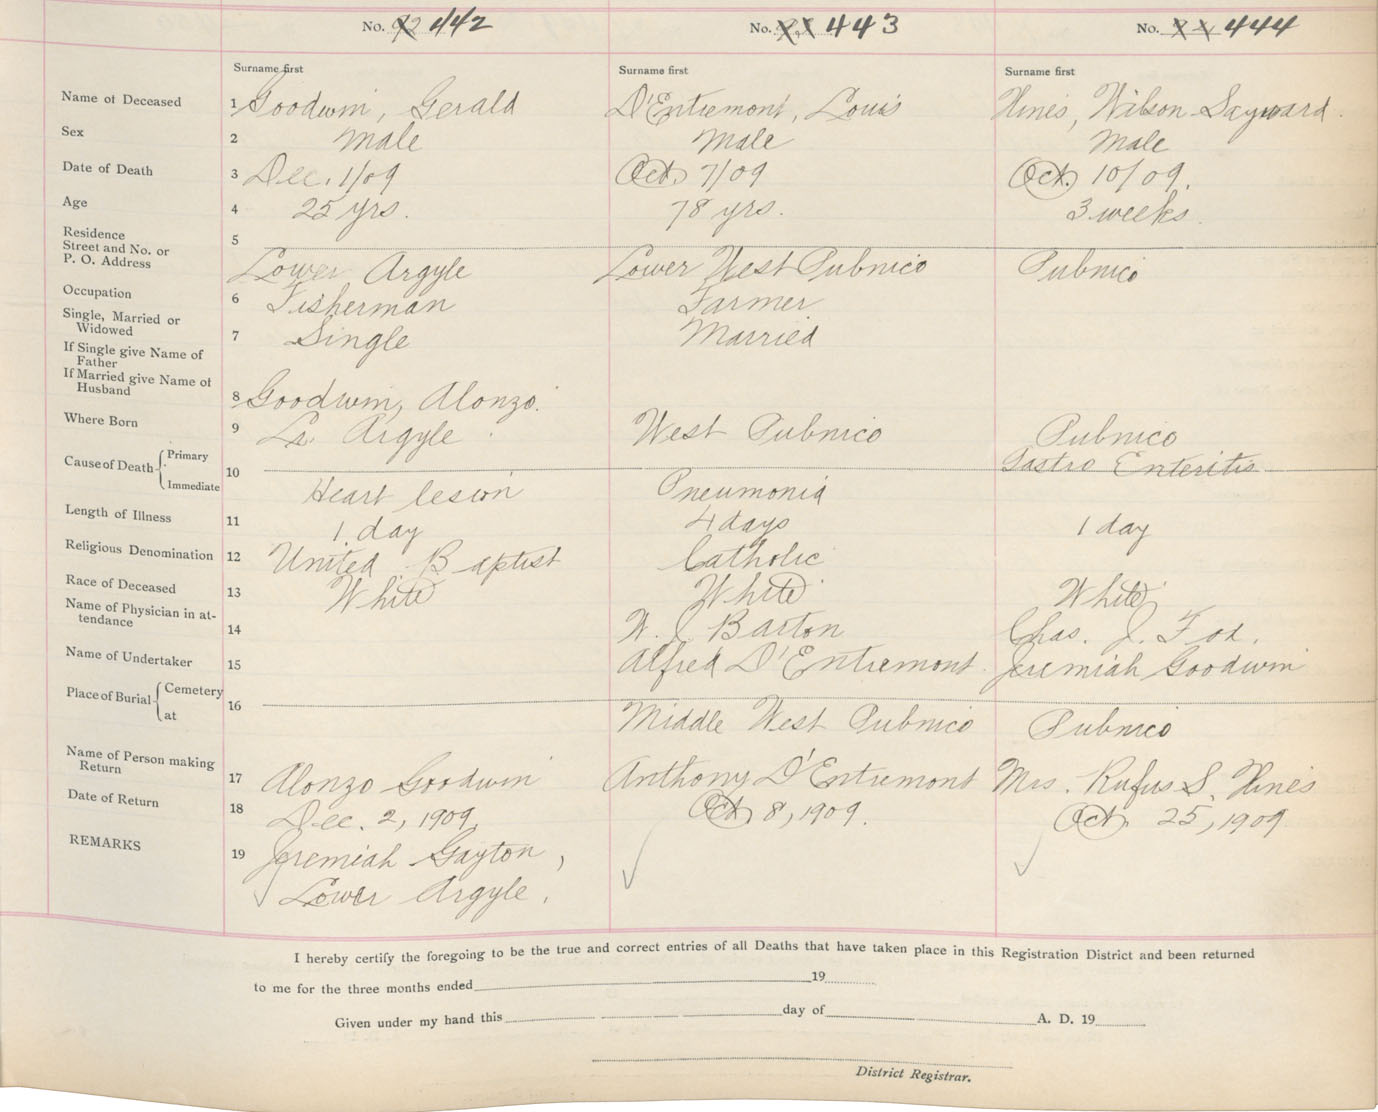 No. 442 No. 443 No. 444
Surname first Surname first Surname first
Name of Deceased 1 Goodwin, Gerald D'Entremont, Louis Hines, Wilson Sayward.
Sex 2 Male Male Male
Date of Death 3 Dec. 1/09 Oct. 7/09 Oct. 10/09.
Age 4 25 yrs. 78 yrs. 3 weeks.
Residence
Street and No. or 5
P. O. Address Lower Argyle Lower West Pubnico Pubnico
Occupation 6 Fisherman Farmer
Single, Married or
Widowed 7 Single Married
If Single give Name of
Father
If Married give Name of
Husband 8 Goodwin, Alonzo.
Where Born 9 Lr. Argyle West Pubnico Pubnico
Cause of Death Primary 10 Gastro Enteritis
Immediate Heart lesion Pneumonia
Length of Illness 11 1 day 4 days 1 day
Religious Denomination 12 United Baptist Catholic
Race of Deceased 13 White White White
Name of Physician in at-
tendance 14 W. J. Barton Chas. J. Fox.
Name of Undertaker 15 Alfred D'Entremont. Jeremiah Goodwin
Place of Burial Cemetery 16
at Middle West Pubnico Pubnico
Name of Person making
Return 17 Alonzo Goodwin Anthony D'Entremont Mrs. Rufus S. Hines
Date of Return 18 Dec. 2, 1909 Oct. 8, 1909. Oct. 25, 1909
REMARKS 19 Jeremiah Gayton,
Lower Argyle.
I hereby certify the foregoing to be the true and correct entries of all Deaths that have taken place in this Registration District and been returned
to me for the three months ended 19
Given under my hand this day of A. D. 19
District Registrar.